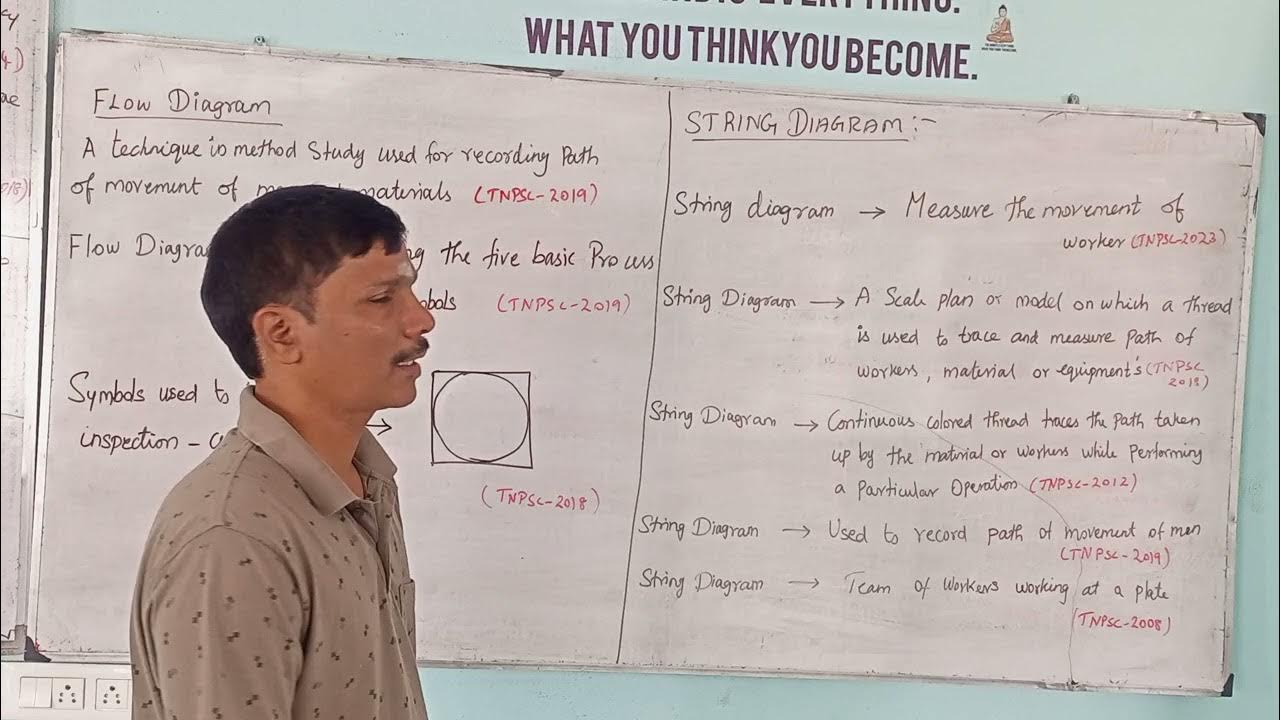 EVERYTHING.
WHAT YOU THINK YOU BECOME.
FLOW DIAGRAM
A technique in method study used for recording Path
of movement of materials (TNPSC-2019)
Flow Diagra the five basic Process
(TNPSC-2019)
Symbols used to
inspection -
(TNPSC-2018)
STRING DIAGRAM:-
String diagram → Measure the movement of
worker (TNPSC-2023)
String Diagram → A Scale plan or model on which a thread
is used to trace and measure Path of
workers, material or equipment's (TNPSC
2018)
String Diagram → Continuous colored thread traces the Path taken
up by the material or workers while Performing
a Particular Operation (TNPSC-2012)
String Diagram → Used to record path of movement of men
(TNPSC-2019)
String Diagram → Team of workers working at a plate
(TNPSC-2008)